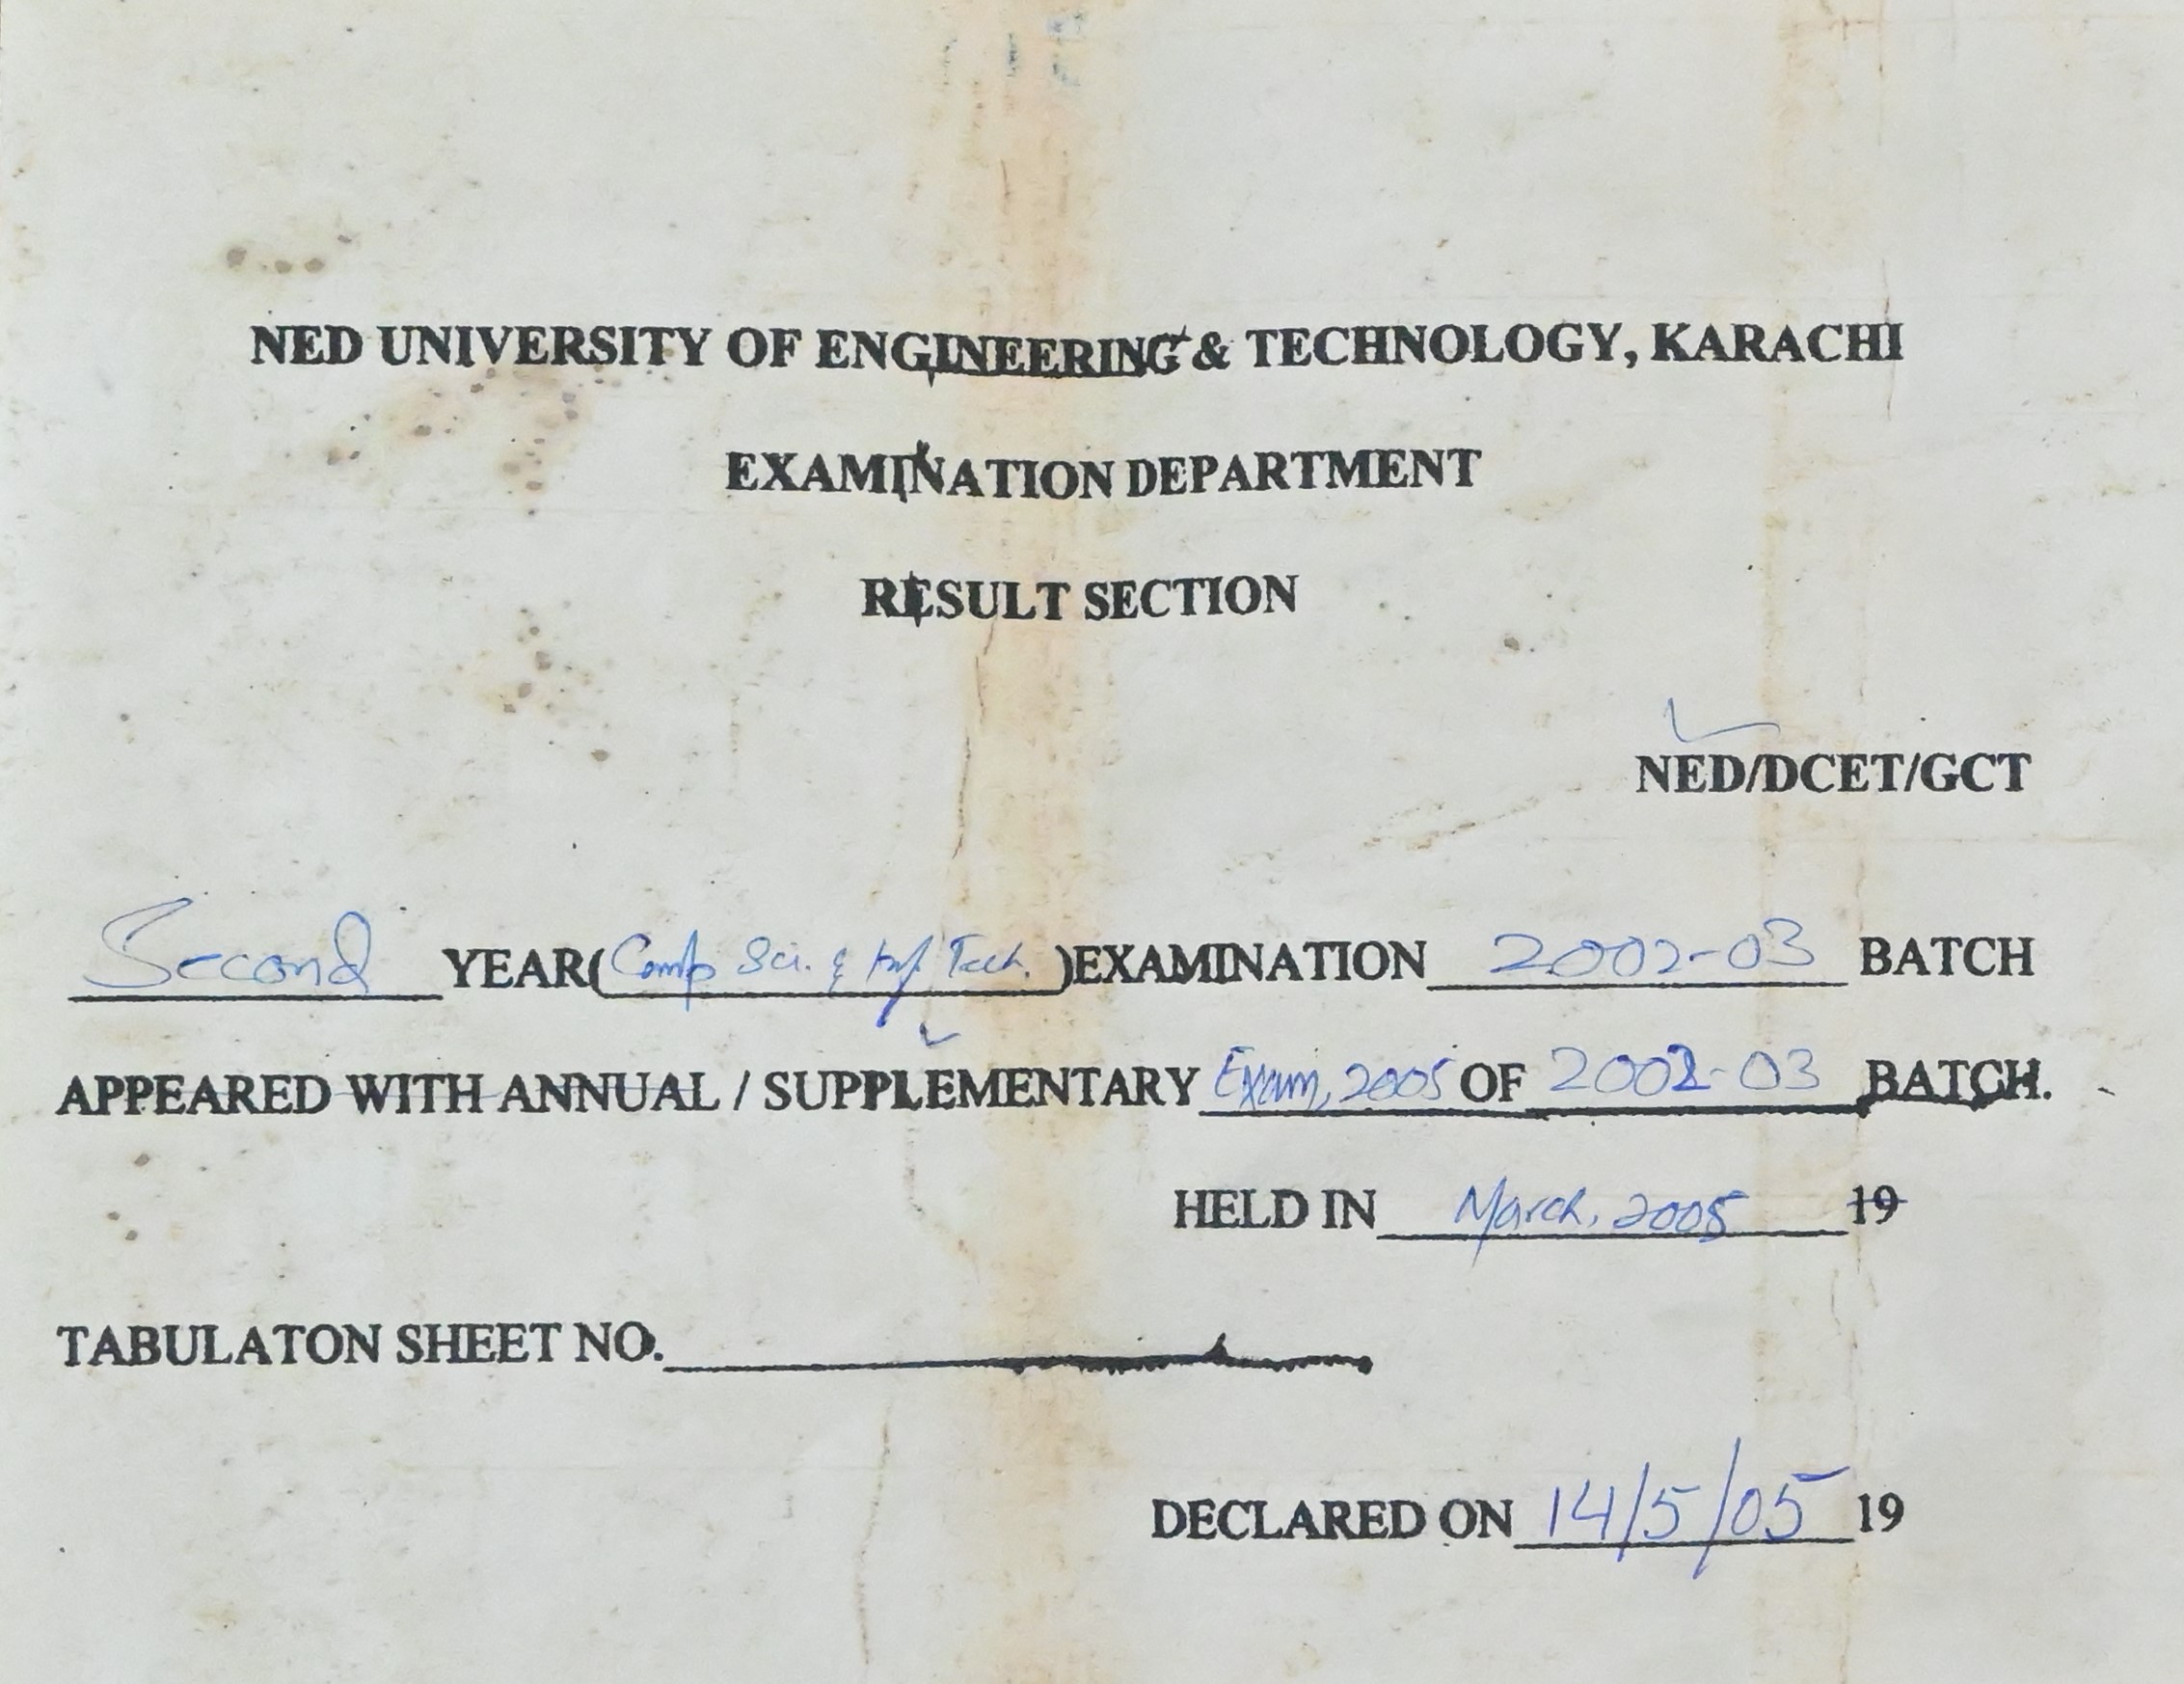 NED UNIVERSITY OF ENGINEERING & TECHNOLOGY, KARACHI
EXAMINATION DEPARTMENT
RESULT SECTION
NED/DCET/GCT
Second YEAR(Comp Sci. & Inf Tech.)EXAMINATION 2002-03 BATCH
APPEARED WITH ANNUAL / SUPPLEMENTARY Exam, 2005 OF 2002-03 BATCH.
HELD IN March, 2005 19
TABULATON SHEET NO.
DECLARED ON 14/5/05 19